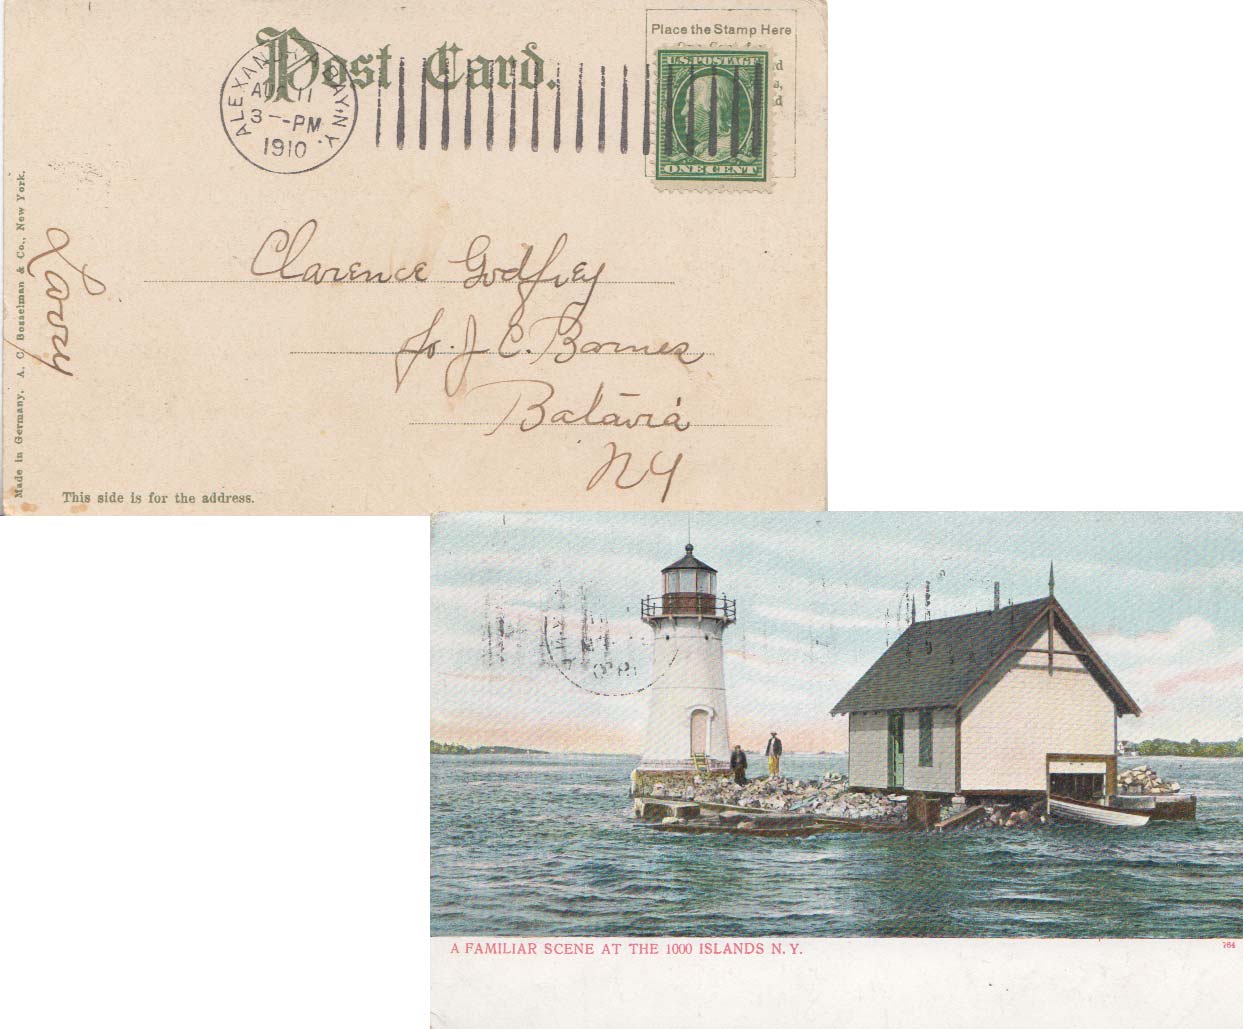 Post Card.
Place the Stamp Here
ALEXANDRIA BAY, N.Y.
AUG 11
3--PM
1910
U.S. POSTAGE
ONE CENT
Clarence Godfrey
℅. J. C. Barnes
Batavia
NY
Larry
Made in Germany. A. C. Bosselman & Co., New York.
This side is for the address.
A FAMILIAR SCENE AT THE 1000 ISLANDS N. Y.
764